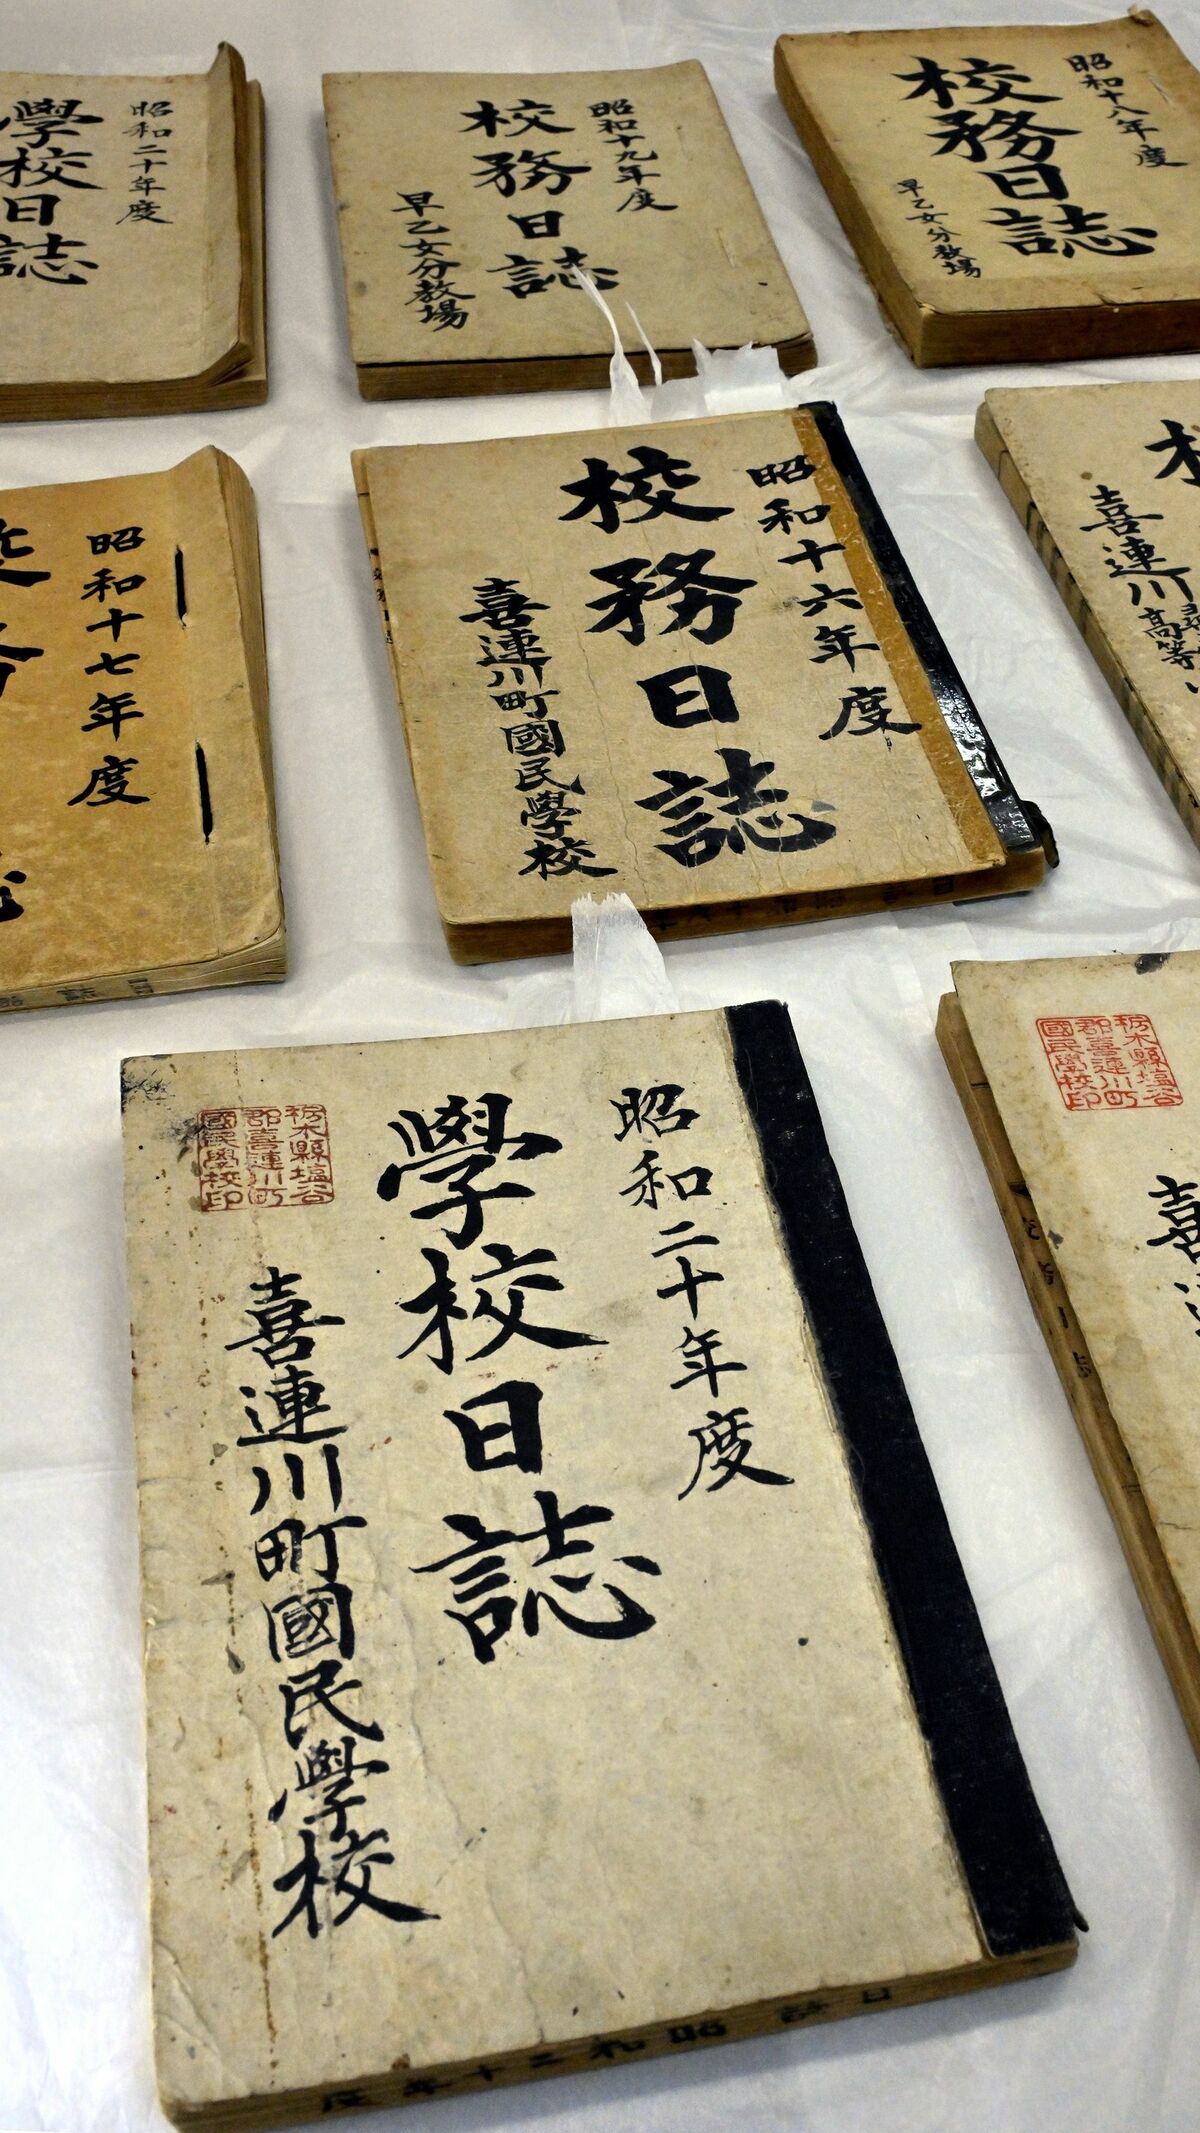 昭和二十年度
學校日誌
昭和十九年度
校務日誌
早乙女分教場
昭和十八年度
校務日誌
早乙女分教場
昭和十七年度
昭和十六年度
校務日誌
喜連川町國民學校
校
喜連川
高等
栃木縣塩谷
郡喜連川町
國民學校印
昭和二十年度
學校日誌
喜連川町國民學校
日誌 昭和二十年度
栃木縣塩谷
郡喜連川町
國民學校印
喜連